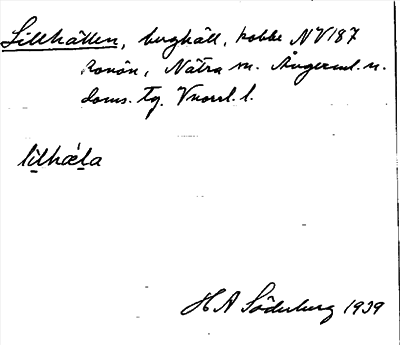 Lillhällen, berghäll, kobbe NV187
Ronön, Nätra sn. Ångerml. n.
doms. Tg. Vnorrl. l.
lìlhæ̀la
H A Söderberg 1939